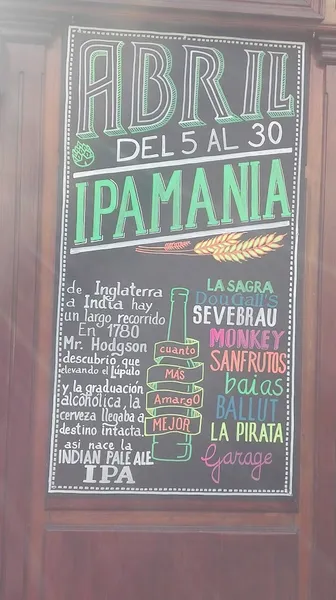 ABRIL
DEL 5 AL 30
IPAMANIA
de Inglaterra
a India hay
un largo recorrido
En 1780
Mr. Hodgson
descubrió que
elevando el lúpulo
y la graduación
alcohólica, la
cerveza llegaba a
destino intacta.
así nace la
INDIAN PALE ALE
IPA
cuanto
MAS
AmargO
MEJOR
LA SAGRA
DouGall's
SEVEBRAU
MONKEY
SANFRUTOS
baias
BALLUT
LA PIRATA
Garage